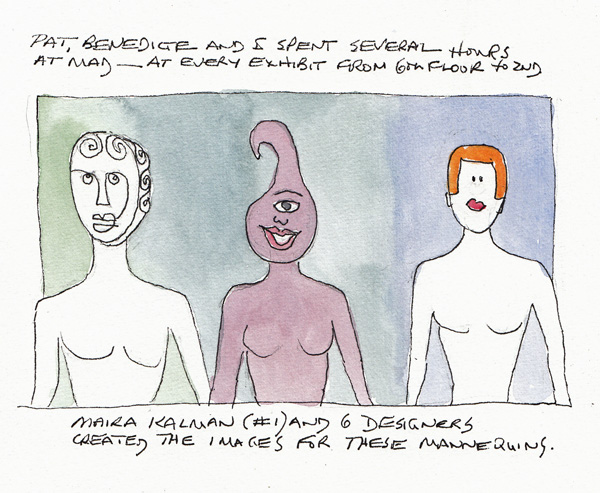 PAT, BENEDICTE AND I SPENT SEVERAL HOURS
AT MAD — AT EVERY EXHIBIT FROM 6TH FLOOR TO 2ND
MAIRA KALMAN (#1) AND 6 DESIGNERS
CREATED THE IMAGES FOR THESE MANNEQUINS.